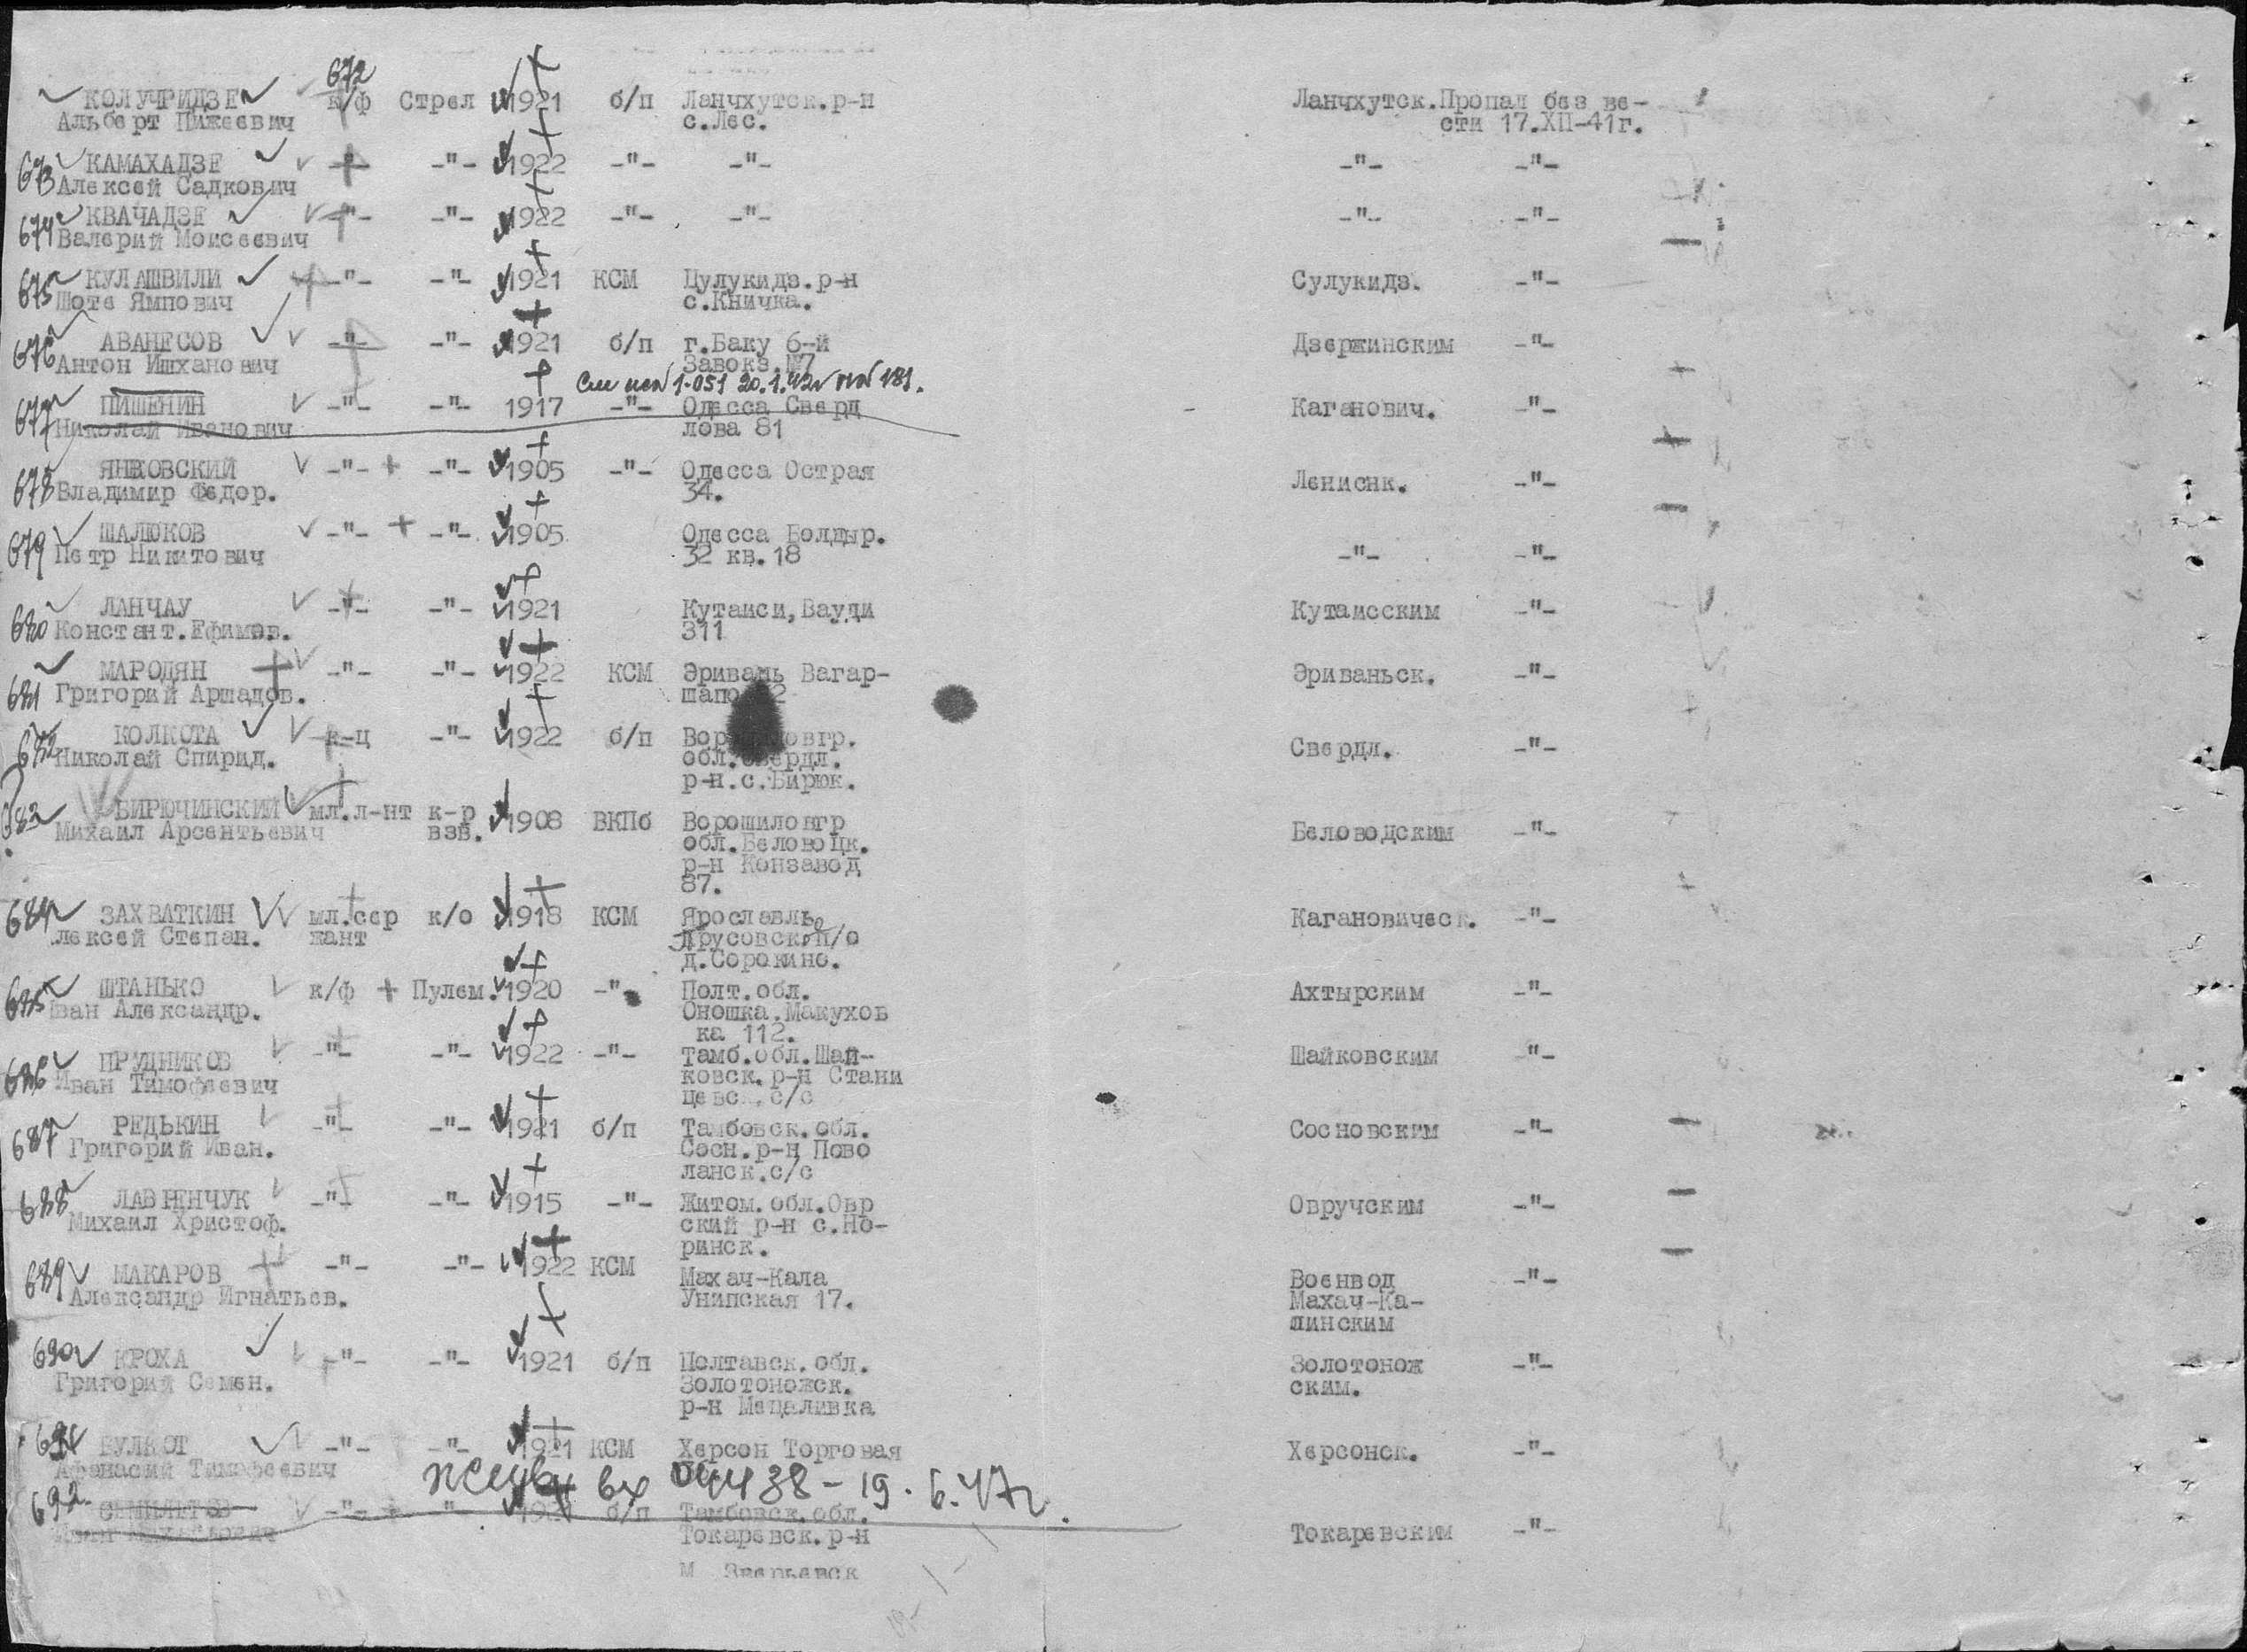 672
КОЛУЧРИДЗЕ к/ф Стрел 1921 б/п Ланчхутск.р-н Ланчхутск.Пропал без ве-
Альберт Пижеевич с.Лес. сти 17.ХП-41г.
673 КАМАХАДЗЕ -"- -"- 1922 -"- -"- -"- -"-
Алексей Садкович
674 КВАЧАДЗЕ -"- -"- 1922 -"- -"- -"- -"-
Валерий Моисеевич
675 КУЛАШВИЛИ -"- -"- 1921 КСМ Цулукидз.р-н Сулукидз. -"-
Шота Ямпович с.Кничка.
676 АВАНЕСОВ -"- -"- 1921 б/п г.Баку 6-й Дзержинским -"-
Антон Ишханович Завокз.№7
1-051 20.1.42г 181.
677 ПИШЕНИН -"- -"- 1917 -"- Одесса Сверд Каганович. -"-
Николай Иванович лова 81
678 ЯНКОВСКИЙ -"- -"- 1905 -"- Одесса Острая Лениснк. -"-
Владимир Федор. 34.
679 ШАЛЮКОВ -"- -"- 1905 Одесса Болдыр. -"- -"-
Петр Никитович 32 кв.18
680 ЛАНЧАУ -"- -"- 1921 Кутаиси,Вауди Кутаисским -"-
Констант.Ефимов. 311
681 МАРОДЯН -"- -"- 1922 КСМ Эривань Вагар- Эриваньск. -"-
Григорий Аршадов.
682 КОЛКОТА к-ц -"- 1922 б/п Свердл. -"-
Николай Спирид.
р-н.с.Бирюк.
683 БИРЮЧИНСКИЙ мл.л-нт к-р 1908 ВКПб Ворошиловгр Беловодским -"-
Михаил Арсентьевич взв. обл.Беловоцк.
р-н Конзавод
87.
684 ЗАХВАТКИН мл.сер к/о 1918 КСМ Ярославль Кагановическ. -"-
лексей Степан. жант Прусовск.п/о
д.Сорокино.
685 ШТАНЬКО к/ф Пулем. 1920 -"- Полт.обл. Ахтырским -"-
Иван Александр. Оношка.Макухов
ка 112.
686 ПРУДНИКОВ -"- -"- 1922 -"- Тамб.обл.Шай- Шайковским -"-
Иван Тимофеевич ковск.р-н Стани
цевск.с/с
687 РЕДЬКИН -"- -"- 1921 б/п Тамбовск.обл. Сосновским -"-
Григорий Иван. Сосн.р-н Пово
ланск.с/с
688 ЛАВРЕНЧУК -"- -"- 1915 -"- Житом.обл.Овр Овручским -"-
Михаил Христоф. ский р-н с.Но-
ринск.
689 МАКАРОВ -"- -"- 1922 КСМ Махач-Кала Военвод -"-
Александр Игнатьев. Унипская 17. Махач-Ка-
линским
690 КРОХА -"- -"- 1921 б/п Полтавск.обл. Золотонож -"-
Григорий Семен. Золотоножск. ским.
р-н Мецаливка
691 БУЛКОТ -"- -"- 1921 КСМ Херсон Торговая Херсонск. -"-
Афанасий Тимофеевич
вх 04438-19.6.47г.
692 СЕМИЛЕТОВ -"- -"- б/п Тамбовск.обл. Токаревским -"-
Токаревск.р-н